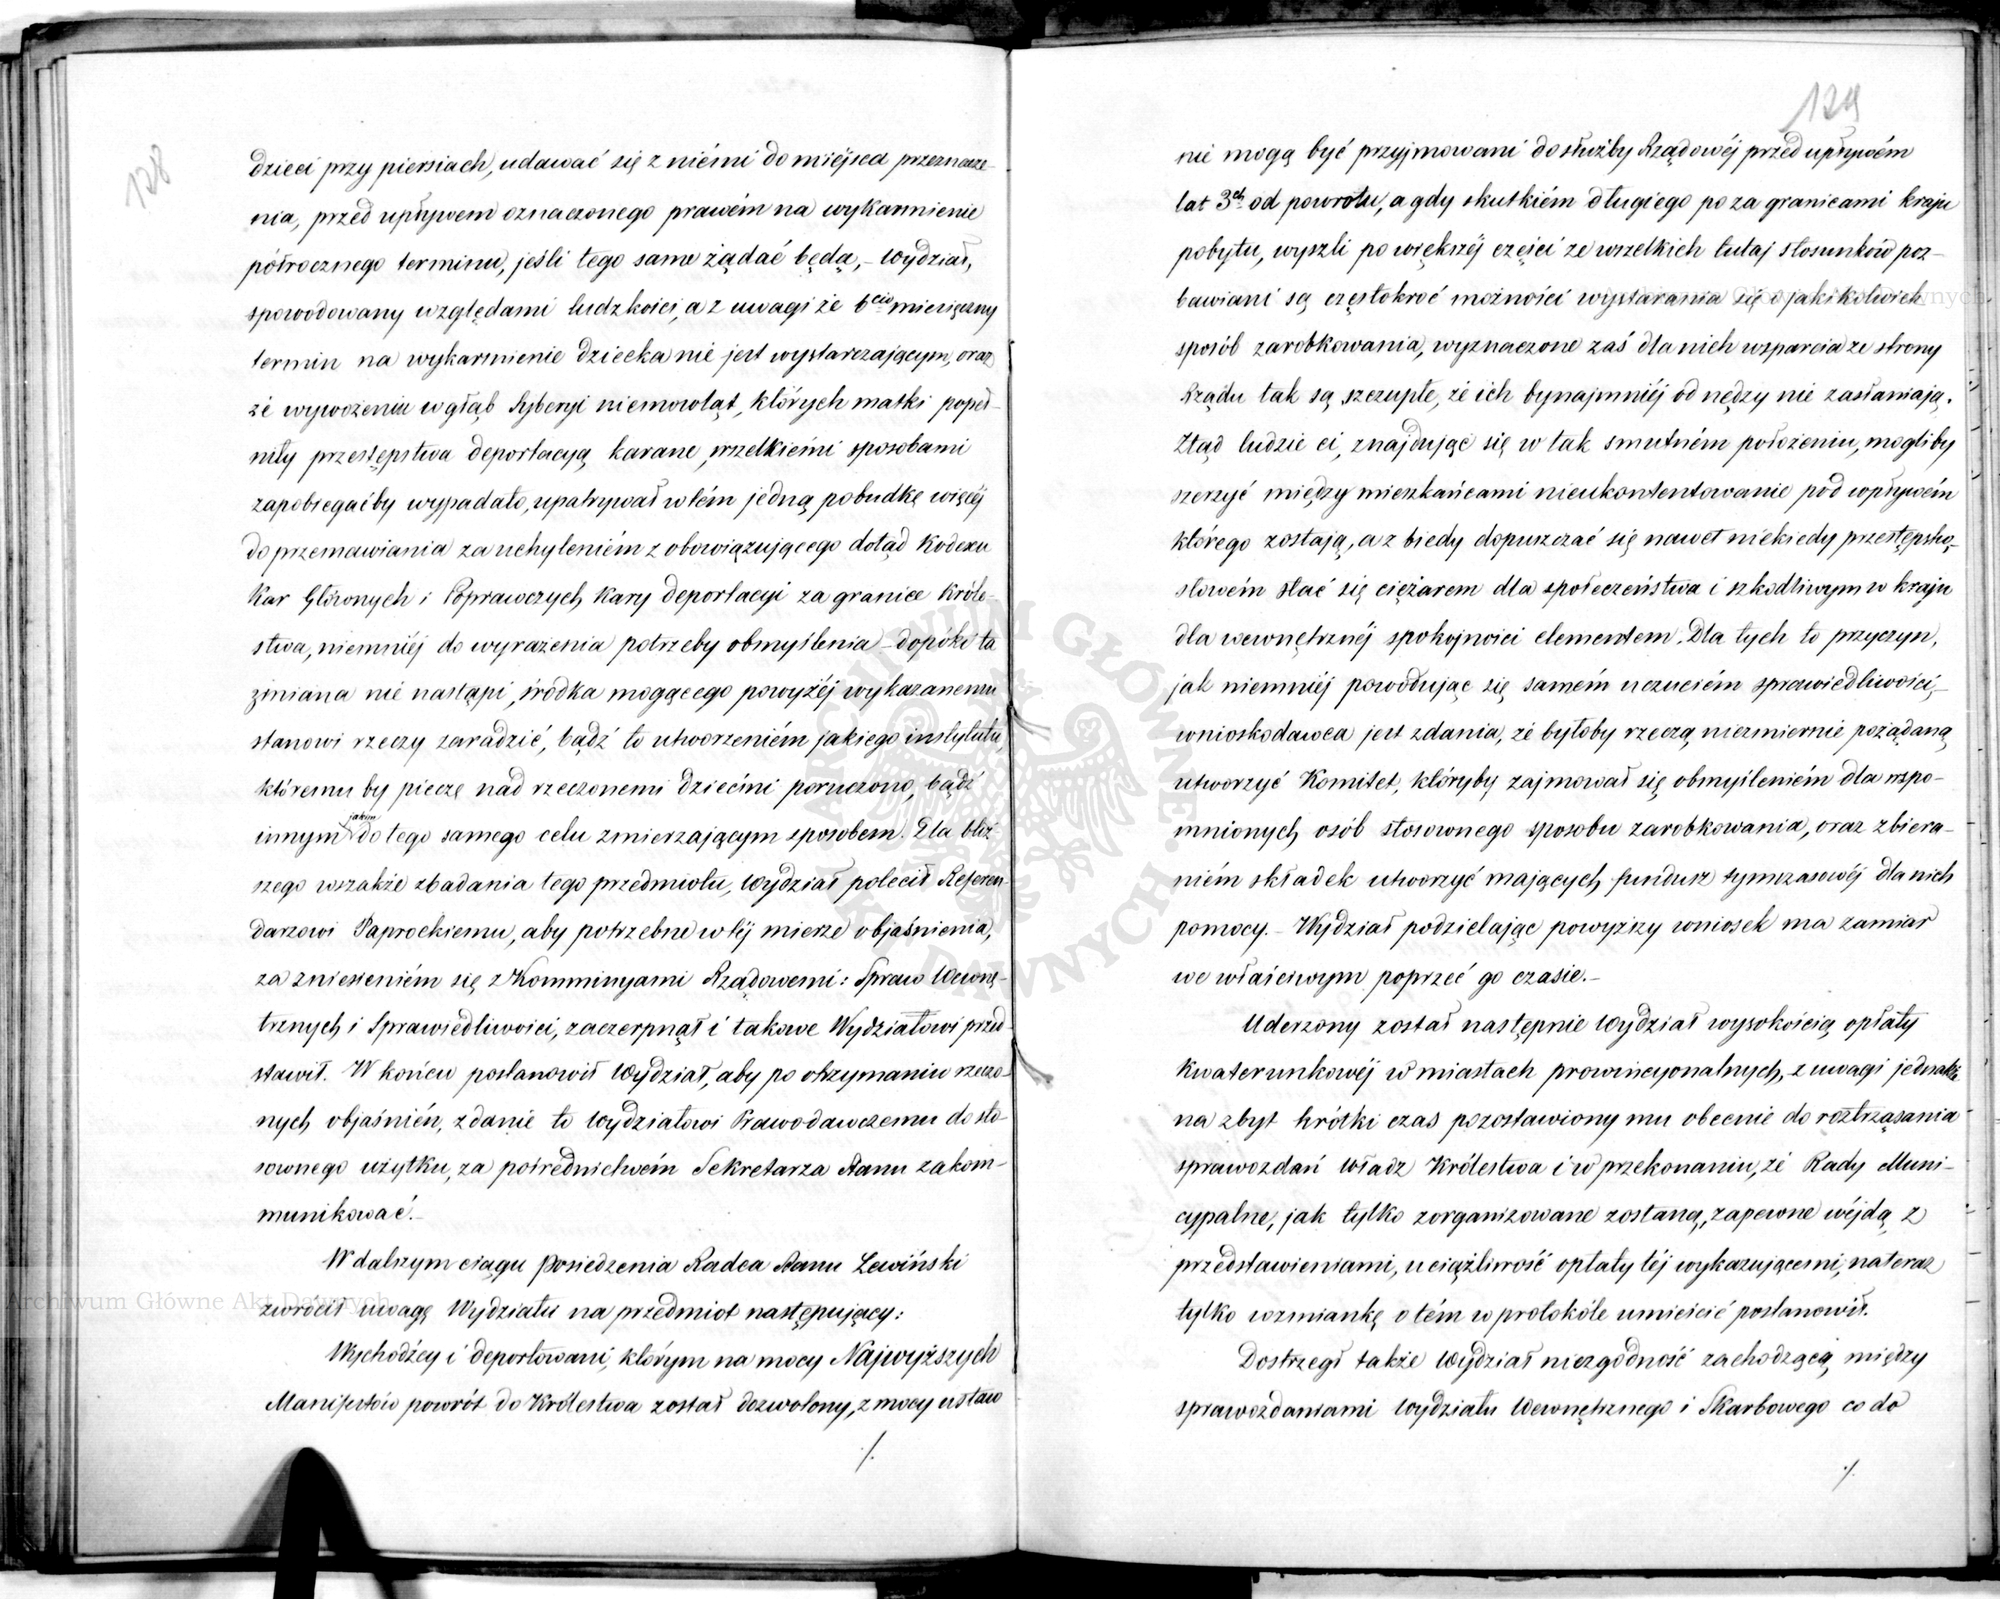 128
dzieci przy piersiach, udawać się z niémi do miéjsca przeznacze-
nia, przed upływem oznaczonego prawém na wykarmienie
półrocznego terminu, jeśli tego same żądać będą, – Wydział,
spowodowany względami ludzkości, a z uwagi że 6cio miesięczny
termin na wykarmienie dziecka nie jest wystarczającym, oraz
że wywożeniu w głąb Syberyi niemowląt, których matki popeł-
niły przestępstwa deportacyą karane, wszelkiémi sposobami
zapobiegać by wypadało, upatrywał w tém jedną pobudkę więcéj
do przemawiania za uchyleniém z obowiązującego dotąd Kodexu
Kar Głównych i Poprawczych kary deportacyi za granice Króle-
stwa, niemniéj do wyrażenia potrzeby obmyślenia – dopóki ta
zmiana nie nastąpi, środka mogącego powyżéj wykazanemu
stanowi rzeczy zaradzić, bądź to utworzeniém jakiego instytutu,
któremu by pieczę nad rzeczonemi dziećmi poruczono, bądź
innym jakim do tego samego celu zmierzającym sposobem. Dla bliż-
szego wszakże zbadania tego przedmiotu, Wydział polecił Referen-
darzowi Paprockiemu, aby potrzebne w téj mierze objaśnienia,
za zniesieniém się z Kommissyami Rządowemi: Spraw Wewnę-
trznych i Sprawiedliwości, zaczerpnął i takowe Wydziałowi przed-
stawił. W końcu postanowił Wydział, aby po otrzymaniu rzeczo-
nych objaśnień, zdanie to Wydziałowi Prawodawczemu do sto-
sownego użytku, za pośrednictwém Sekretarza Stanu zakom-
munikować.–
W dalszym ciągu posiedzenia Radca Stanu Lewiński
zwrócił uwagę Wydziału na przedmiot następujący:
Wychodźcy i deportowani, którym na mocy Najwyższych
Manifestów powrót do Królestwa został dozwolony, z mocy ustaw
./.
129
nie mogą być przyjmowani do służby Rządowéj przed upływém
lat 3ch od powrotu, a gdy skutkiém długiego po za granicami kraju
pobytu, wyszli po większéj części ze wszelkich tutaj stosunków poz-
bawiani są częstokroć możności wystarania się o jakikolwiek
sposób zarobkowania, wyznaczone zaś dla nich wsparcia ze strony
Rządu tak są szczupłe, że ich bynajmniéj od nędzy nie zasłaniają.
Ztąd ludzie ci, znajdując się w tak smutném położeniu, mogliby
szerzyć między mieszkańcami nieukontentowanie pod wpływém
którego zostają, a z biedy dopuszczać się nawet niekiedy przestępstw,–
słowém stać się ciężarem dla społeczeństwa i szkodliwym w kraju
dla wewnętrznéj spokojności elementem. Dla tych to przyczyn,
jak niemniéj powodując się samém uczuciém sprawiedliwości,–
wnioskodawca jest zdania, że byłoby rzeczą niezmiernie pożądaną
utworzyć Komitet, któryby zajmował się obmyśleniém dla wspo-
mnionych osób stosownego sposobu zarobkowania, oraz zbiera-
niém składek utworzyć mających fundusz tymczasowéj dla nich
pomocy.– Wydział podzielając powyższy wniosek ma zamiar
we właściwym poprzeć go czasie.–
Uderzony został następnie Wydział wysokością opłaty
Kwaterunkowéj w miastach prowincyonalnych, z uwagi jednakże
na zbyt krótki czas pozostawiony mu obecnie do roztrząsania
sprawozdań Władz Królestwa i w przekonaniu, że Rady Muni-
cypalne, jak tylko zorganizowane zostaną, zapewne wéjdą z
przedstawieniami, uciążliwość opłaty téj wykazującemi, na teraz
tylko wzmiankę o tém w protokóle umieścić postanowił.
Dostrzegł także Wydział niezgodność zachodzącą między
sprawozdaniami Wydziału Wewnętrznego i Skarbowego co do
./.
ARCHIWUM GŁÓWNE AKT DAWNYCH
Archiwum Główne Akt Dawnych